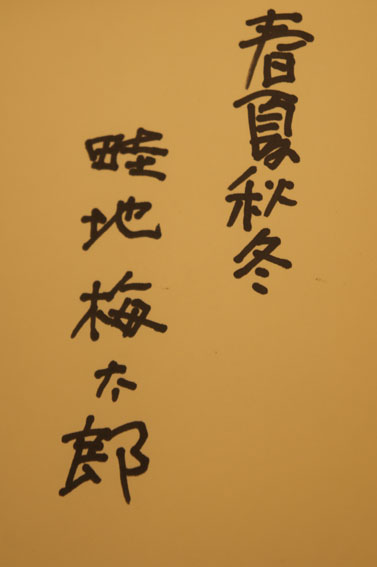 春夏秋冬
畦地梅太郎